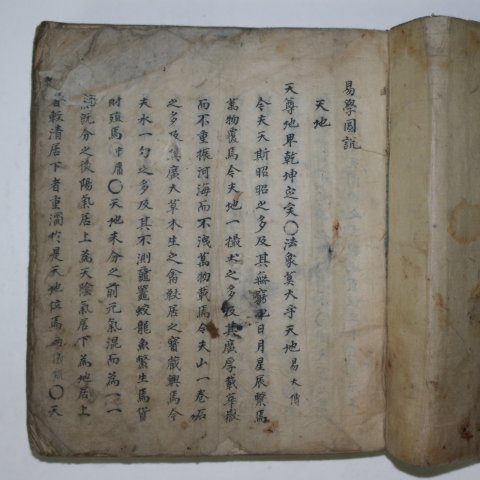 易學圖說
天地
天尊地卑乾坤定矣〇法象莫大乎天地易大傳
今夫天斯昭昭之多及其無窮也日月星辰繫焉
萬物覆焉今夫地一撮土之多及其廣厚載華嶽
而不重振河海而不洩萬物載焉今夫山一卷石
之多及其廣大草木生之禽獸居之寶藏興焉今
夫水一勺之多及其不測黿鼉蛟龍魚鱉生焉貨
財殖焉中庸〇天地未分之前元氣混而為一
旣分之後陽氣居上為天陰氣居下為地居上
者輕清居下者重濁於是天地位焉〇天